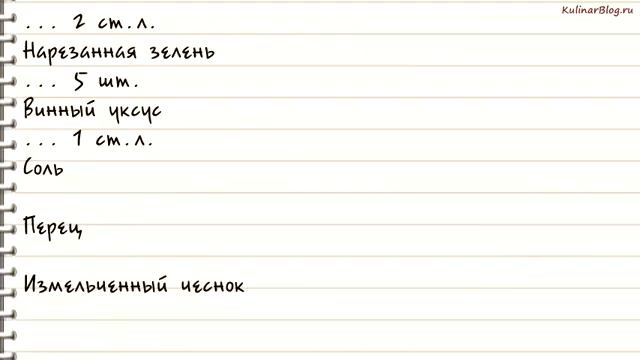 KulinarBlog.ru
... 2 ст.л.
Нарезанная зелень
... 5 шт.
Винный уксус
... 1 ст.л.
Соль
Перец
Измельченный чеснок